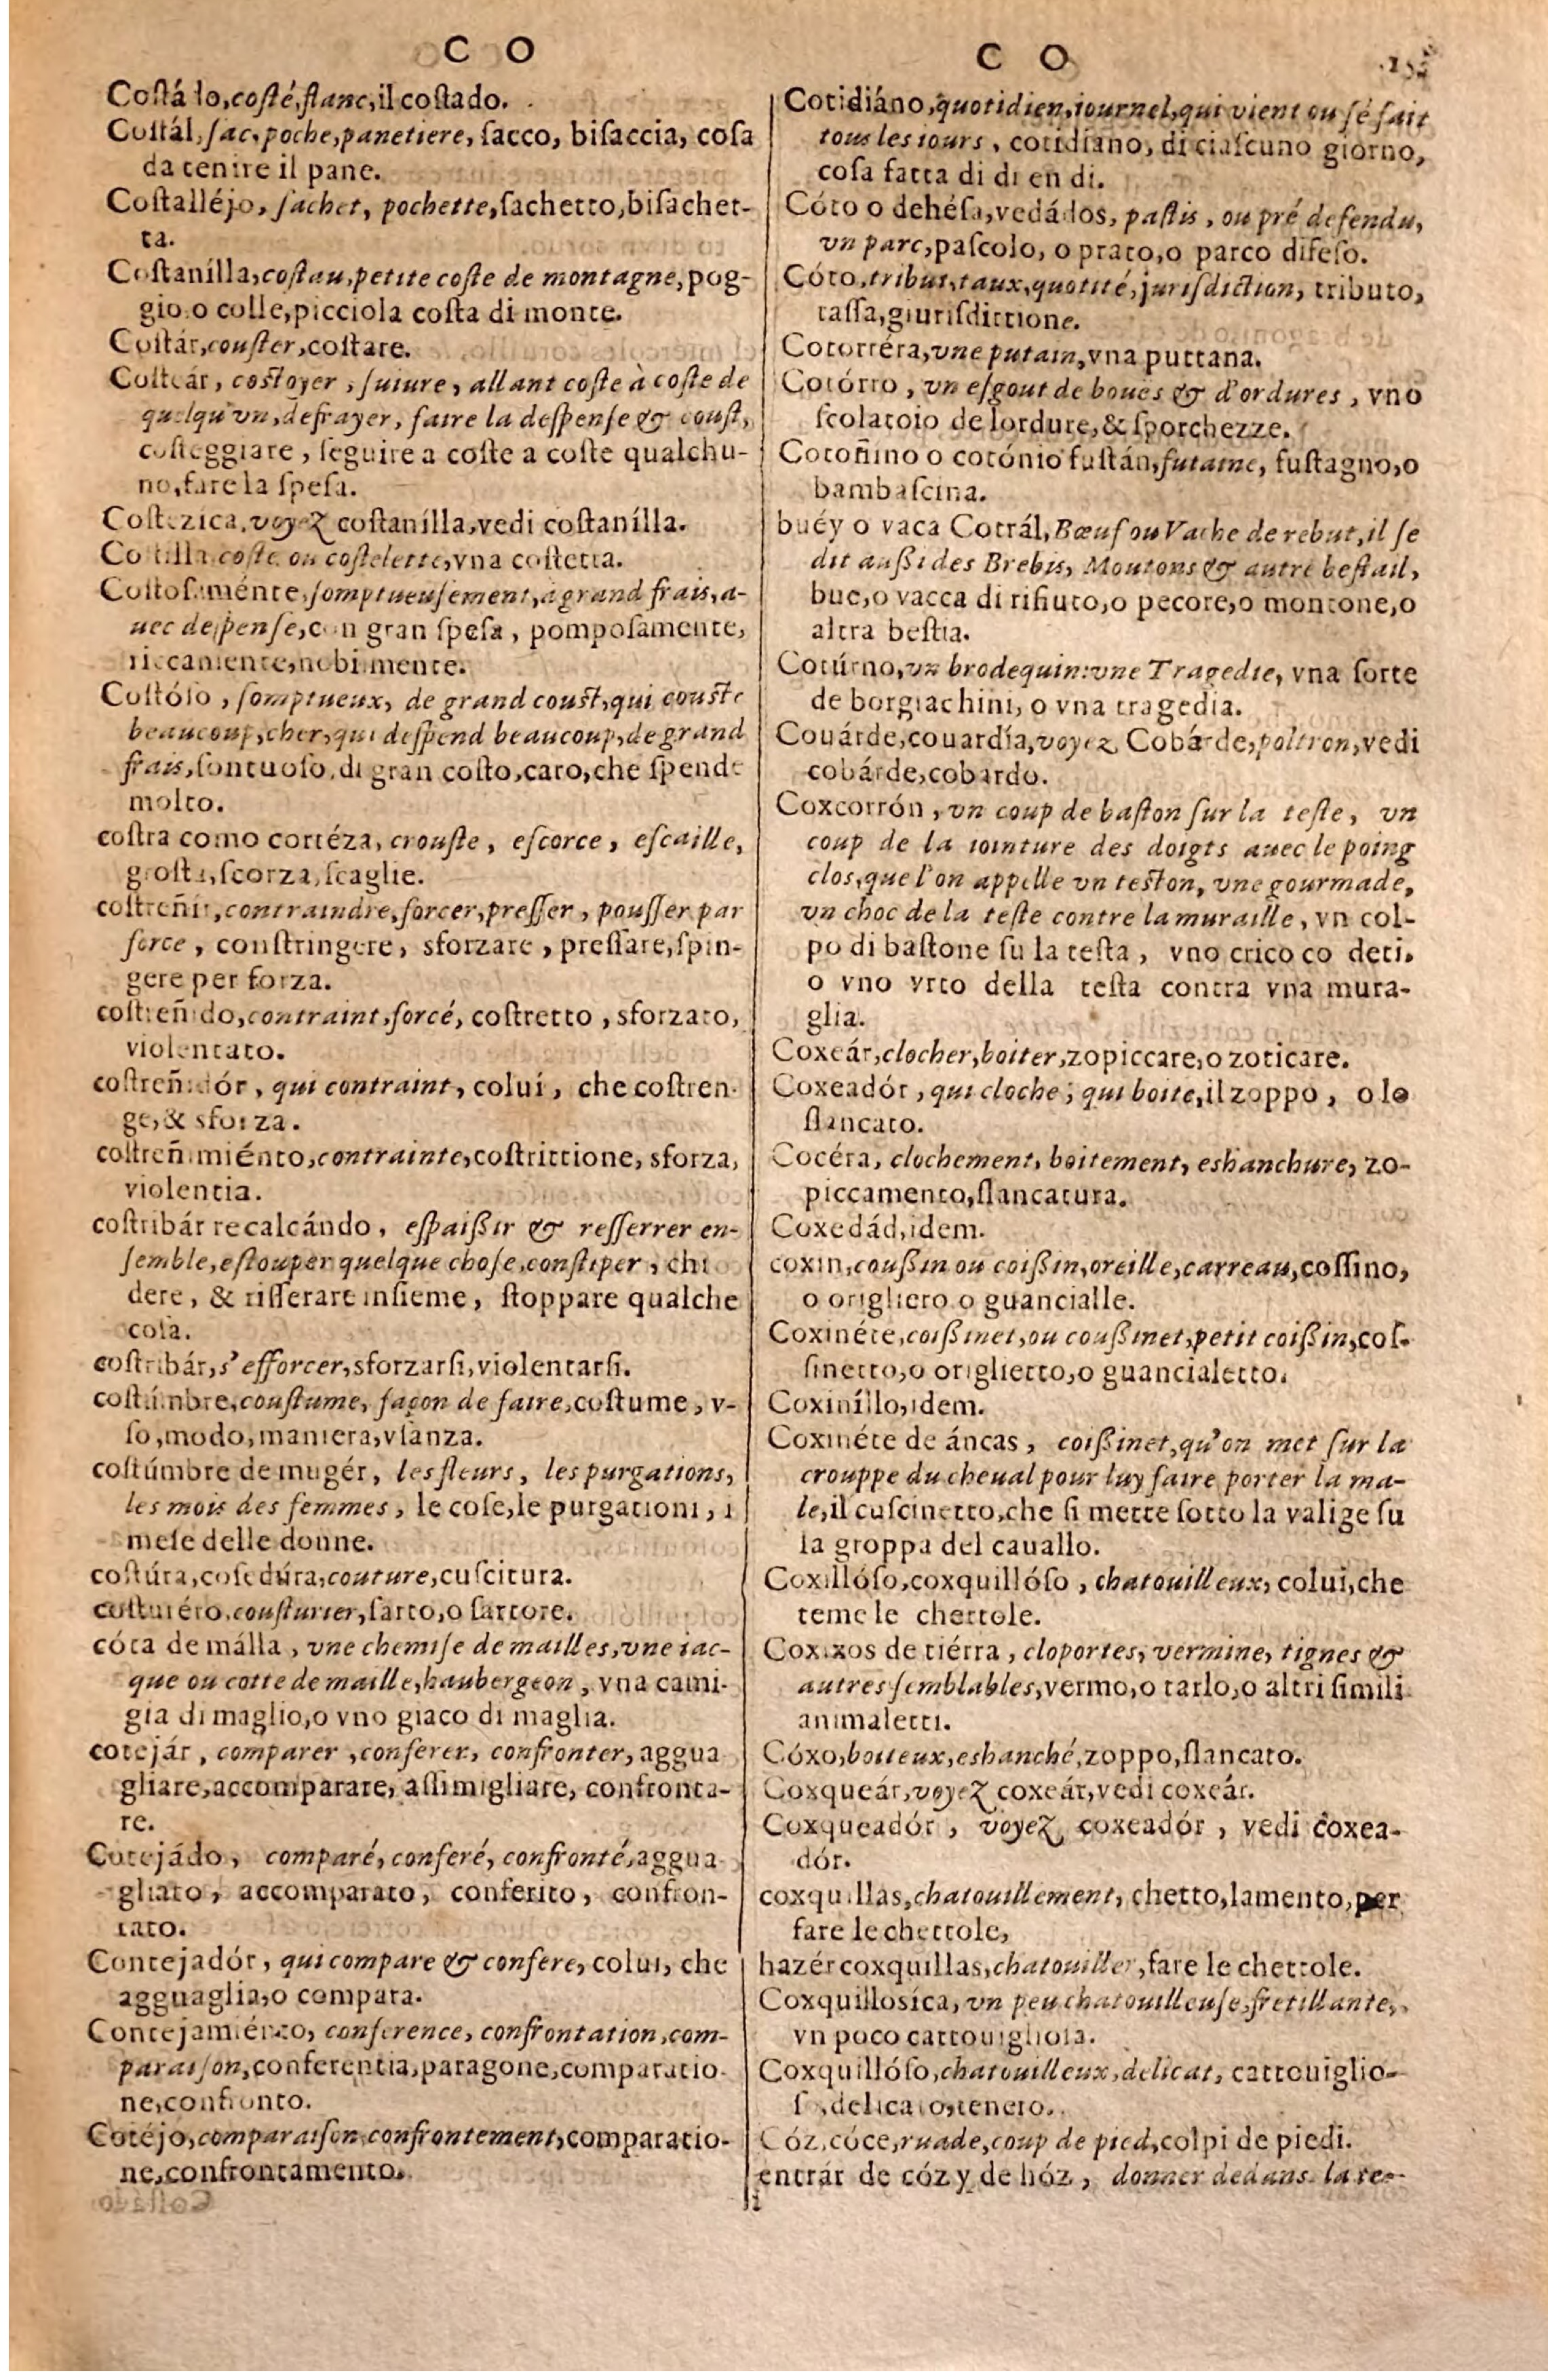 C O
Costádo,costé,flanc,il costado.
Costál,sac,poche,panetiere, sacco, bisaccia, cosa
da tenire il pane.
Costalléjo, sachet, pochette,sachetto,bisachet-
ta.
Costanílla,costau,petite coste de montagne,pog-
gio o colle,picciola costa di monte.
Costár,couster,costare.
Costeár, costoyer, suiure, allant coste à coste de
quelqu'vn,defrayer, faire la despense & coust,
costeggiare, seguire a coste a coste qualchu-
no,fare la spesa.
Costezica,voyez costanílla,vedi costanílla.
Costilla coste ou costelette,vna costetta.
Costosaménte,somptueusement,à grand frais,a-
uec despense,con gran spesa, pomposamente,
riccamente,nobilmente.
Costóso, somptueux, de grand coust,qui couste
beaucoup,cher,qui despend beaucoup,de grand
frais,sontuoso,di gran costo,caro,che spende
molto.
costra como cortéza, crouste, escorce, escaille,
grosta,scorza,scaglie.
costreñir,contraindre,forcer,presser, pousser par
force, constringere, sforzare, pressare,spin-
gere per forza.
costreñido,contraint,forcé, costretto, sforzato,
violentato.
costreñidór, qui contraint, colui, che costren-
ge,& sforza.
costreñimiénto,contrainte,costrittione, sforza,
violentia.
costribár recalcándo, espaißir & resserrer en-
semble,estouper quelque chose,constiper, chi
dere, & risserare insieme, stoppare qualche
cosa.
costribár,s'efforcer,sforzarsi,violentarsi.
costúmbre,coustume, façon de faire,costume, v-
so,modo,maniera,vsanza.
costúmbre de mugér, les fleurs, les purgations,
les mois des femmes, le cose,le purgationi, i
mese delle donne.
costúra,cosedúra,couture,cuscitura.
costuréro,cousturier,sarto,o sartore.
cóta de málla, vne chemise de mailles,vne iac-
que ou cotte de maille,haubergeon, vna cami-
gia di maglio,o vno giaco di maglia.
cotejár, comparer, conferer, confronter, aggua
gliare,accomparare, assimigliare, confronta-
re.
Cotejádo, comparé, conferé, confronté,aggua
gliato, accomparato, conferito, confron-
tato.
Contejadór, qui compare & confere, colui, che
agguaglia,o compara.
Contejamiénto, conference, confrontation,com-
paraison,conferentia,paragone,comparatio-
ne,confronto.
Cotéjo,comparaison,confrontement,comparatio-
ne,confrontamento.
C O
Cotidiáno,quotidien,iournel,qui vient ou sé fait
tous les iours, cotidiano, di ciascuno giorno,
cosa fatta di di en di.
Cóto o dehésa,vedádos, pastis, ou pré defendu,
vn parc,pascolo, o prato,o parco difeso.
Cóto,tribut,taux,quotité,jurisdiction, tributo,
tassa,giurisdittione.
Cotorréra,vne putain,vna puttana.
Cotórro, vn esgout de boues & d'ordures, vno
scolatoio de lordure,& sporchezze.
Cotoñino o cotónio fustán,futaine, fustagno,o
bambascina.
buéy o vaca Cotrál,Bœuf ou Vache de rebut,il se
dit außi des Brebis, Moutons & autre bestail,
bue,o vacca di rifiuto,o pecore,o montone,o
altra bestia.
Cotúrno,vn brodequin:vne Tragedie, vna sorte
de borgiachini, o vna tragedia.
Couárde,couardía,voyez Cobárde,poltron,vedi
cobárde,cobardo.
Coxcorrón, vn coup de baston sur la teste, vn
coup de la iointure des doigts auec le poing
clos,que l'on appelle vn teston, vne gourmade,
vn choc de la teste contre la muraille, vn col-
po di bastone su la testa, vno crico co deti.
o vno vrto della testa contra vna mura-
glia.
Coxeár,clocher,boiter,zopiccare,o zoticare.
Coxeadór, qui cloche; qui boite,il zoppo, o lo
slancato.
Cocéra, clochement, boitement, eshanchure, zo-
piccamento,slancatura.
Coxedád,idem.
coxin,coußin ou coißin,oreille,carreau,cossino,
o origliero o guancialle.
Coxinéte,coißinet,ou coußinet,petit coißin,cos-
sinetto,o origlietto,o guancialetto.
Coxiníllo,idem.
Coxinéte de áncas, coißinet,qu'on met sur la
crouppe du cheual pour luy faire porter la ma-
le,il cuscinetto,che si mette sotto la valige su
la groppa del cauallo.
Coxillóso,coxquillóso, chatouilleux, colui,che
teme le chettole.
Coxixos de tiérra, cloportes, vermine, tignes &
autres semblables,vermo,o tarlo,o altri simili
animaletti.
Cóxo,boiteux,eshanché,zoppo,slancato.
Coxqueár,voyez coxeár,vedi coxeár.
Coxqueadór, voyez coxeadór, vedi coxea-
dór.
coxquillas,chatouillement, chetto,lamento,per
fare le chettole,
hazér coxquillas,chatouiller,fare le chettole.
Coxquillosíca, vn peu chatouilleuse,fretillante,
vn poco cattouigliosa.
Coxquillóso,chatouilleux,delicat, cattouiglio-
so,delicato,tenero.
Cóz,cóce,ruade,coup de pied,colpi de piedi.
entrár de cóz y de hóz, donner dedans la te-